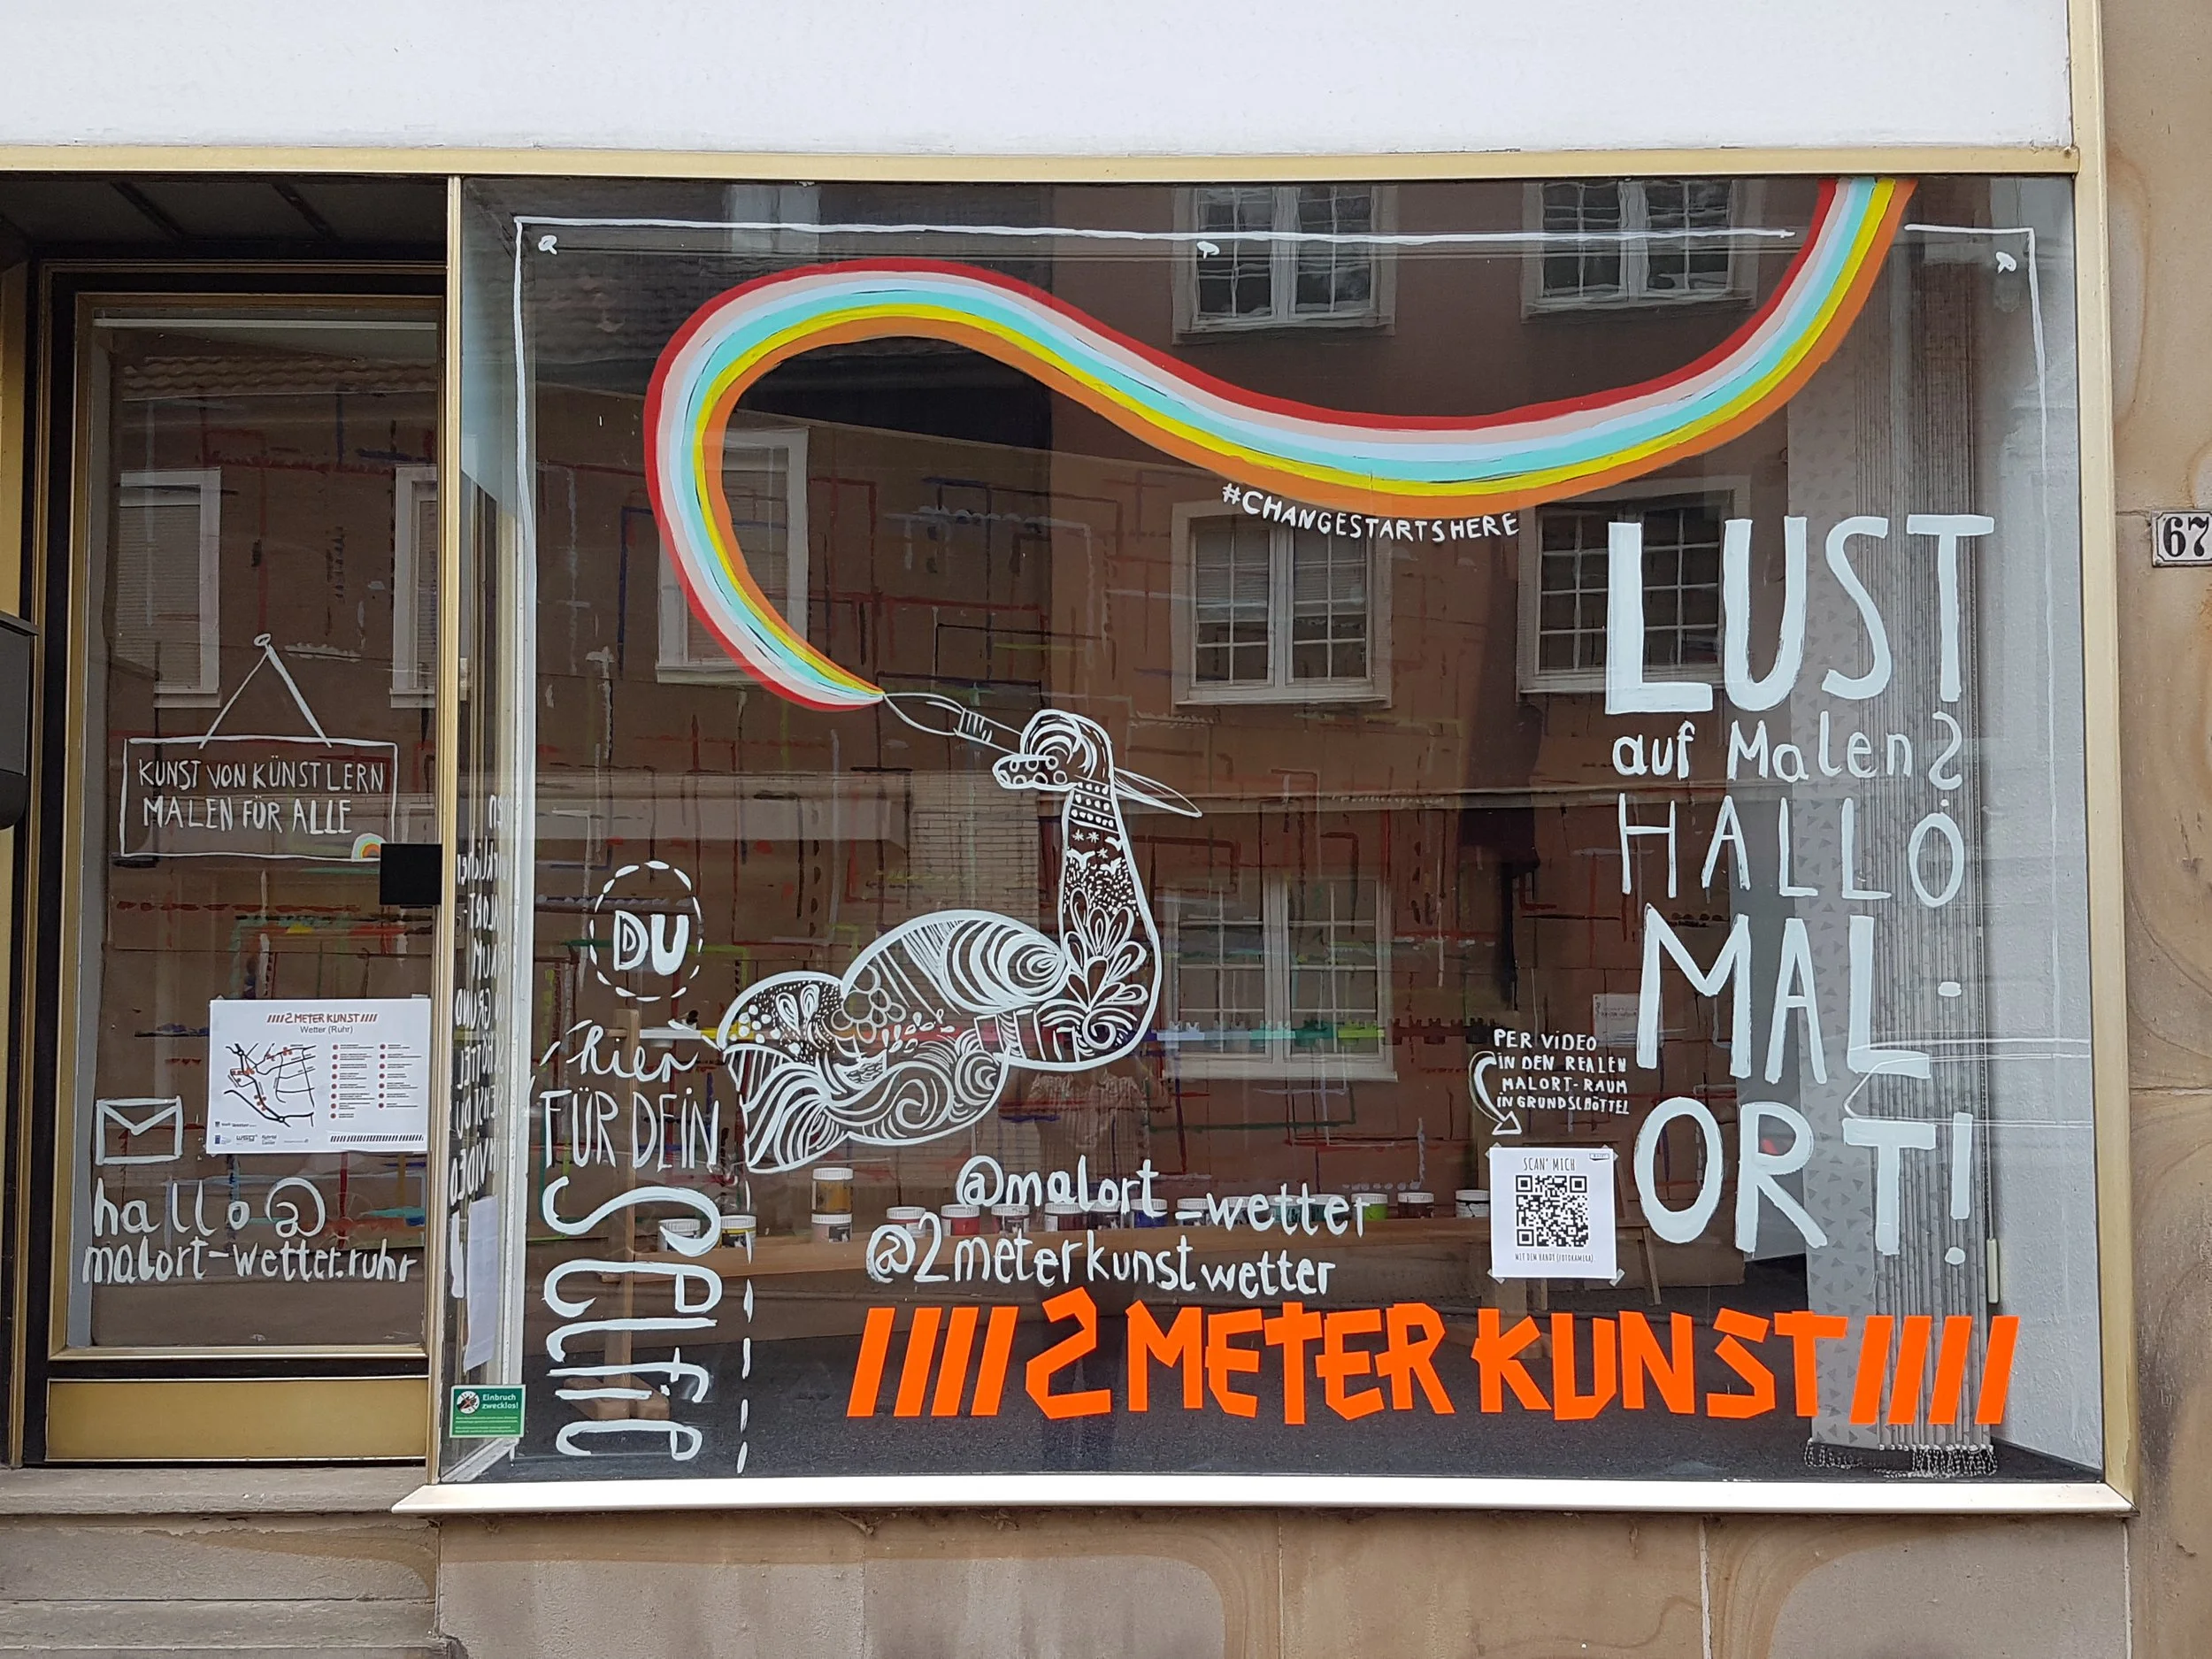 #CHANGESTARTSHERE
LUST
auf Malen?
HALLO
MAL-
ORT!
67
KUNST VON KÜNSTLERN
MALEN FÜR ALLE
DU
hier
FÜR DEIN
SELFIE
////2 METER KUNST////
Wetter (Ruhr)
hallo@
malort-wetter.ruhr
PER VIDEO
IN DEN REALEN
MALORT-RAUM
IN GRUNDSCHÖTTEL
SCAN' MICH
MIT DEM HANDY (FOTOKAMERA)
@malort_wetter
@2meterkunstwetter
////2 METER KUNST////
Einbruch
zwecklos!